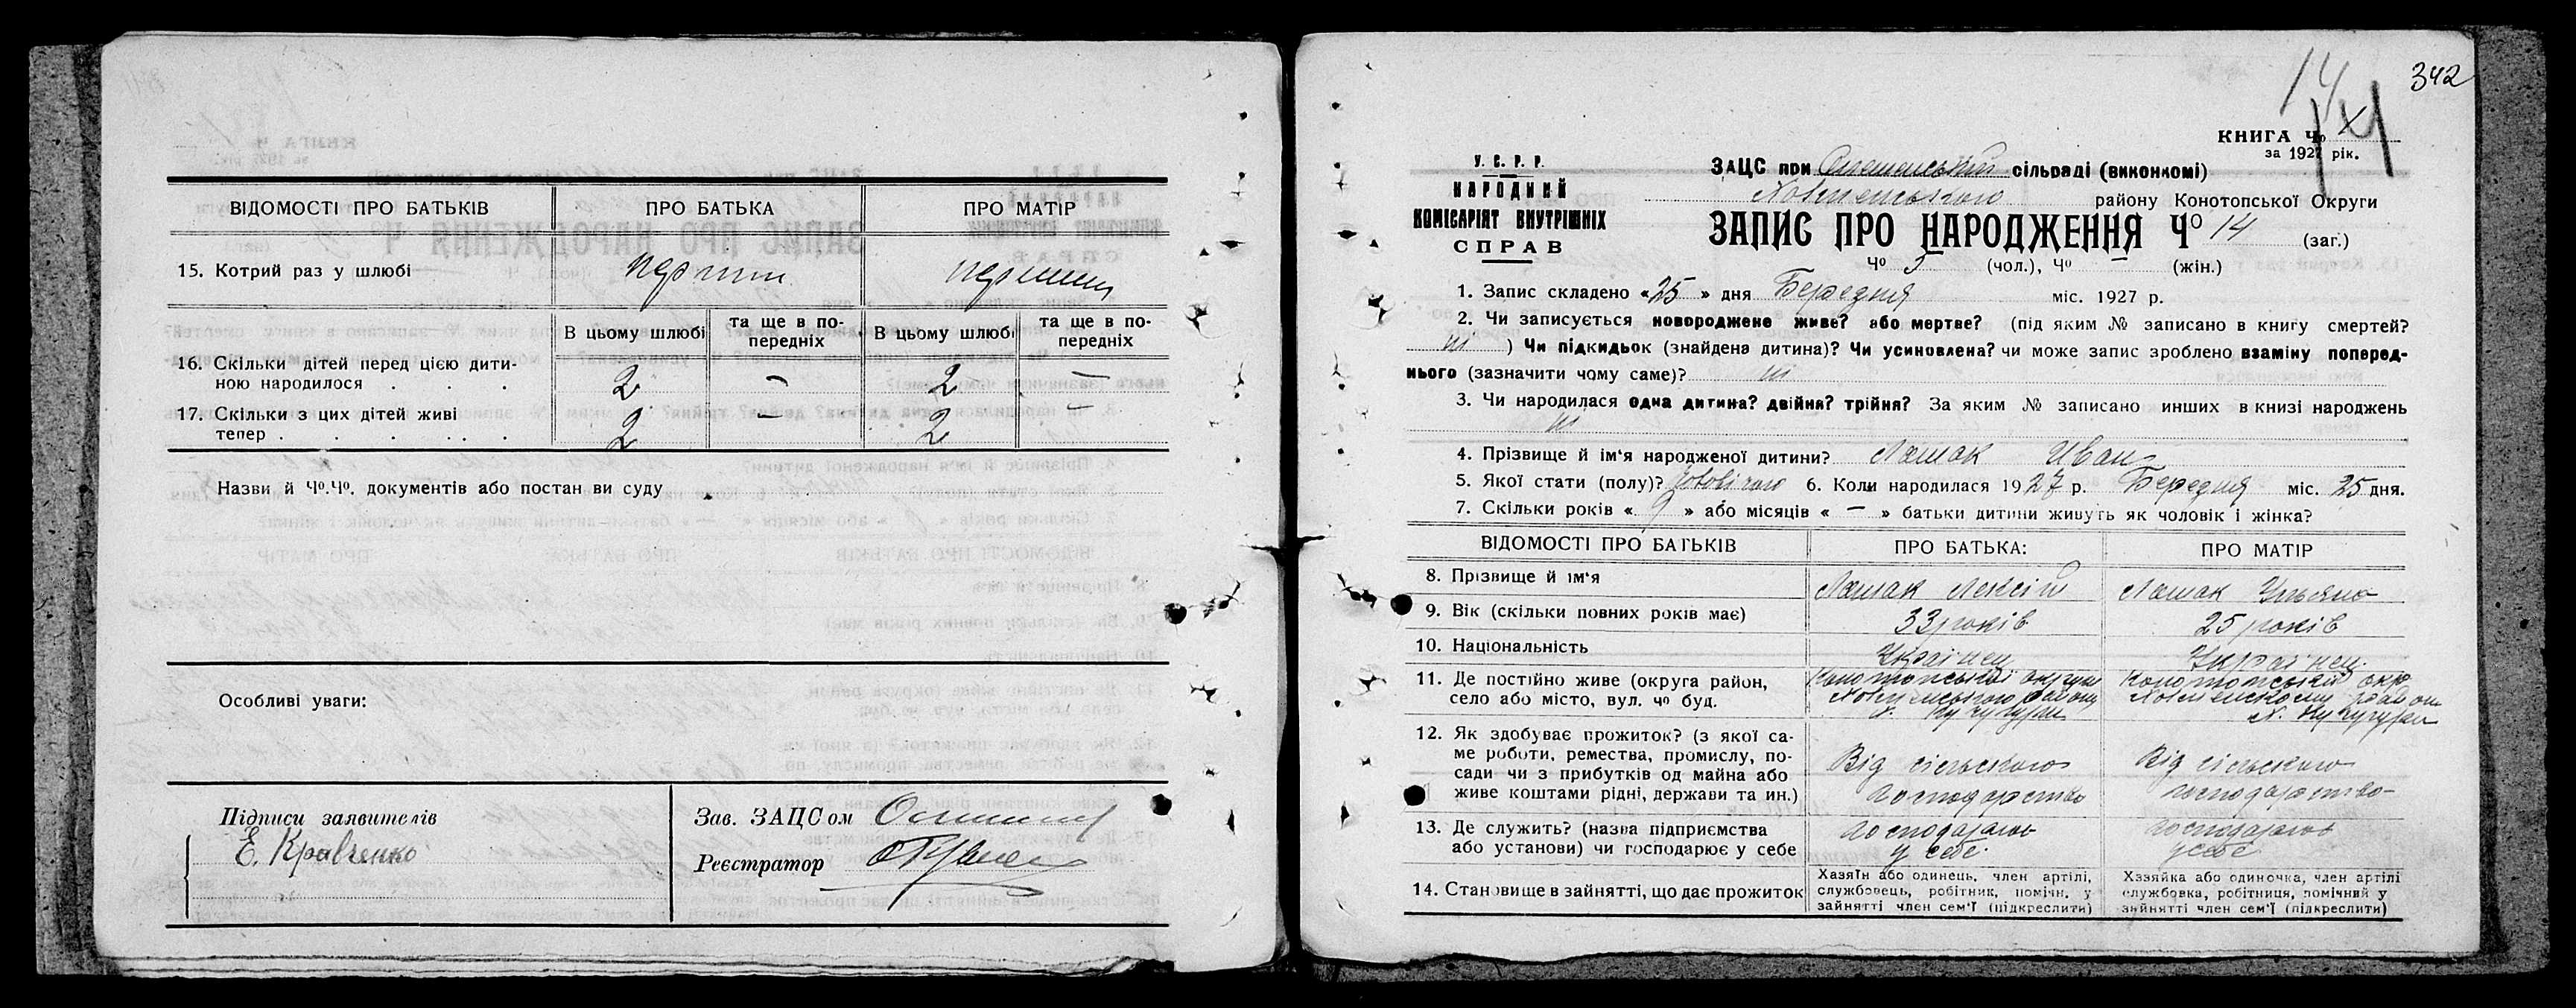 ВІДОМОСТІ ПРО БАТЬКІВ ПРО БАТЬКА ПРО МАТІР
15. Котрий раз у шлюбі
В цьому шлюбі та ще в по-передніх В цьому шлюбі та ще в по-передніх
16. Скільки дітей перед цією дити-
ною народилося . . . 2 — 2 —
17. Скільки з цих дітей живі
тепер . . . . . . 2 — 2 —
Назви й Чо.Чо. документів або постан ви суду
Особливі уваги:
Підписи заявителів
Е. Кравченко
Зав. ЗАЦСом
Реєстратор
342
14
КНИГА Чо
за 1927 рік.
У. С. Р. Р.
НАРОДНИЙ
КОМІСАРІЯТ ВНУТРІШНІХ
СПРАВ
ЗАЦС при сільраді (виконкомі)
району Конотопської Округи
ЗАПИС ПРО НАРОДЖЕННЯ Чо 14 (заг.)
Чо 5 (чол.), Чо — (жін.)
1. Запис складено «25» дня Березня міс. 1927 р.
2. Чи записується новороджене живе? або мертве? (під яким № записано в книгу смертей?
ні ) Чи підкидьок (знайдена дитина)? Чи усиновлена? чи може запис зроблено взаміну поперед-
нього (зазначити чому саме)? ні
3. Чи народилася одна дитина? двійня? трійня? За яким № записано инших в книзі народжень
ні
4. Прізвище й ім'я народженої дитини? Лошак Иван
5. Якої стати (полу)? 6. Коли народилася 1927 р. Березня міс. 25 дня.
7. Скільки років « 9 » або місяців « — » батьки дитини живуть як чоловік і жінка?
ВІДОМОСТІ ПРО БАТЬКІВ ПРО БАТЬКА: ПРО МАТІР
8. Прізвище й ім'я Лошак Лексій Лошак Ульяна
9. Вік (скільки повних років має) 33 років 25 років
10. Національність Українец Українец.
11. Де постійно живе (округа район,
село або місто, вул. чо буд.
12. Як здобуває прожиток? (з якої са-
ме роботи, ремества, промислу, по-
сади чи з прибутків од майна або
живе коштами рідні, держави та ин.)
Від сільського господарство
Від сільського господарство
13. Де служить? (назва підприємства
або установи) чи господарює у себе
у себе.
у себе
14. Становище в зайнятті, що дає прожиток
Хазяїн або одинець, член артілі,
службовець, робітник, помічн. у
зайнятті член сем'ї (підкреслити)
Хазяйка або одиночка, член артілі
службовка, робітниця, помічний у
зайнятті член сем'ї (підкреслити)